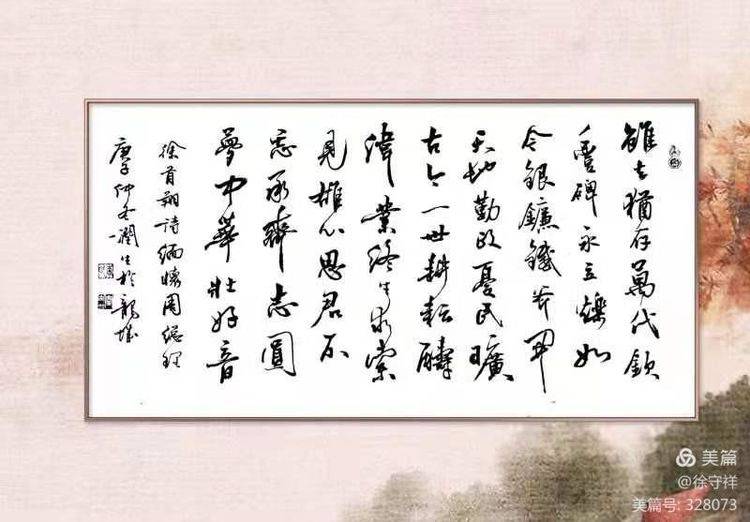 雖去猶存萬代欽
豐碑永立爍如
今銀鐮鐵斧開
天地勤政憂民曠
古今一世耕耘酬
偉業終生求索
見雄心思君不
忘承齊志圓
夢中華壯好音
徐首翔詩緬懷周總理
庚子仲冬潤生於龍城
美篇
@徐守祥
美篇号: 328073